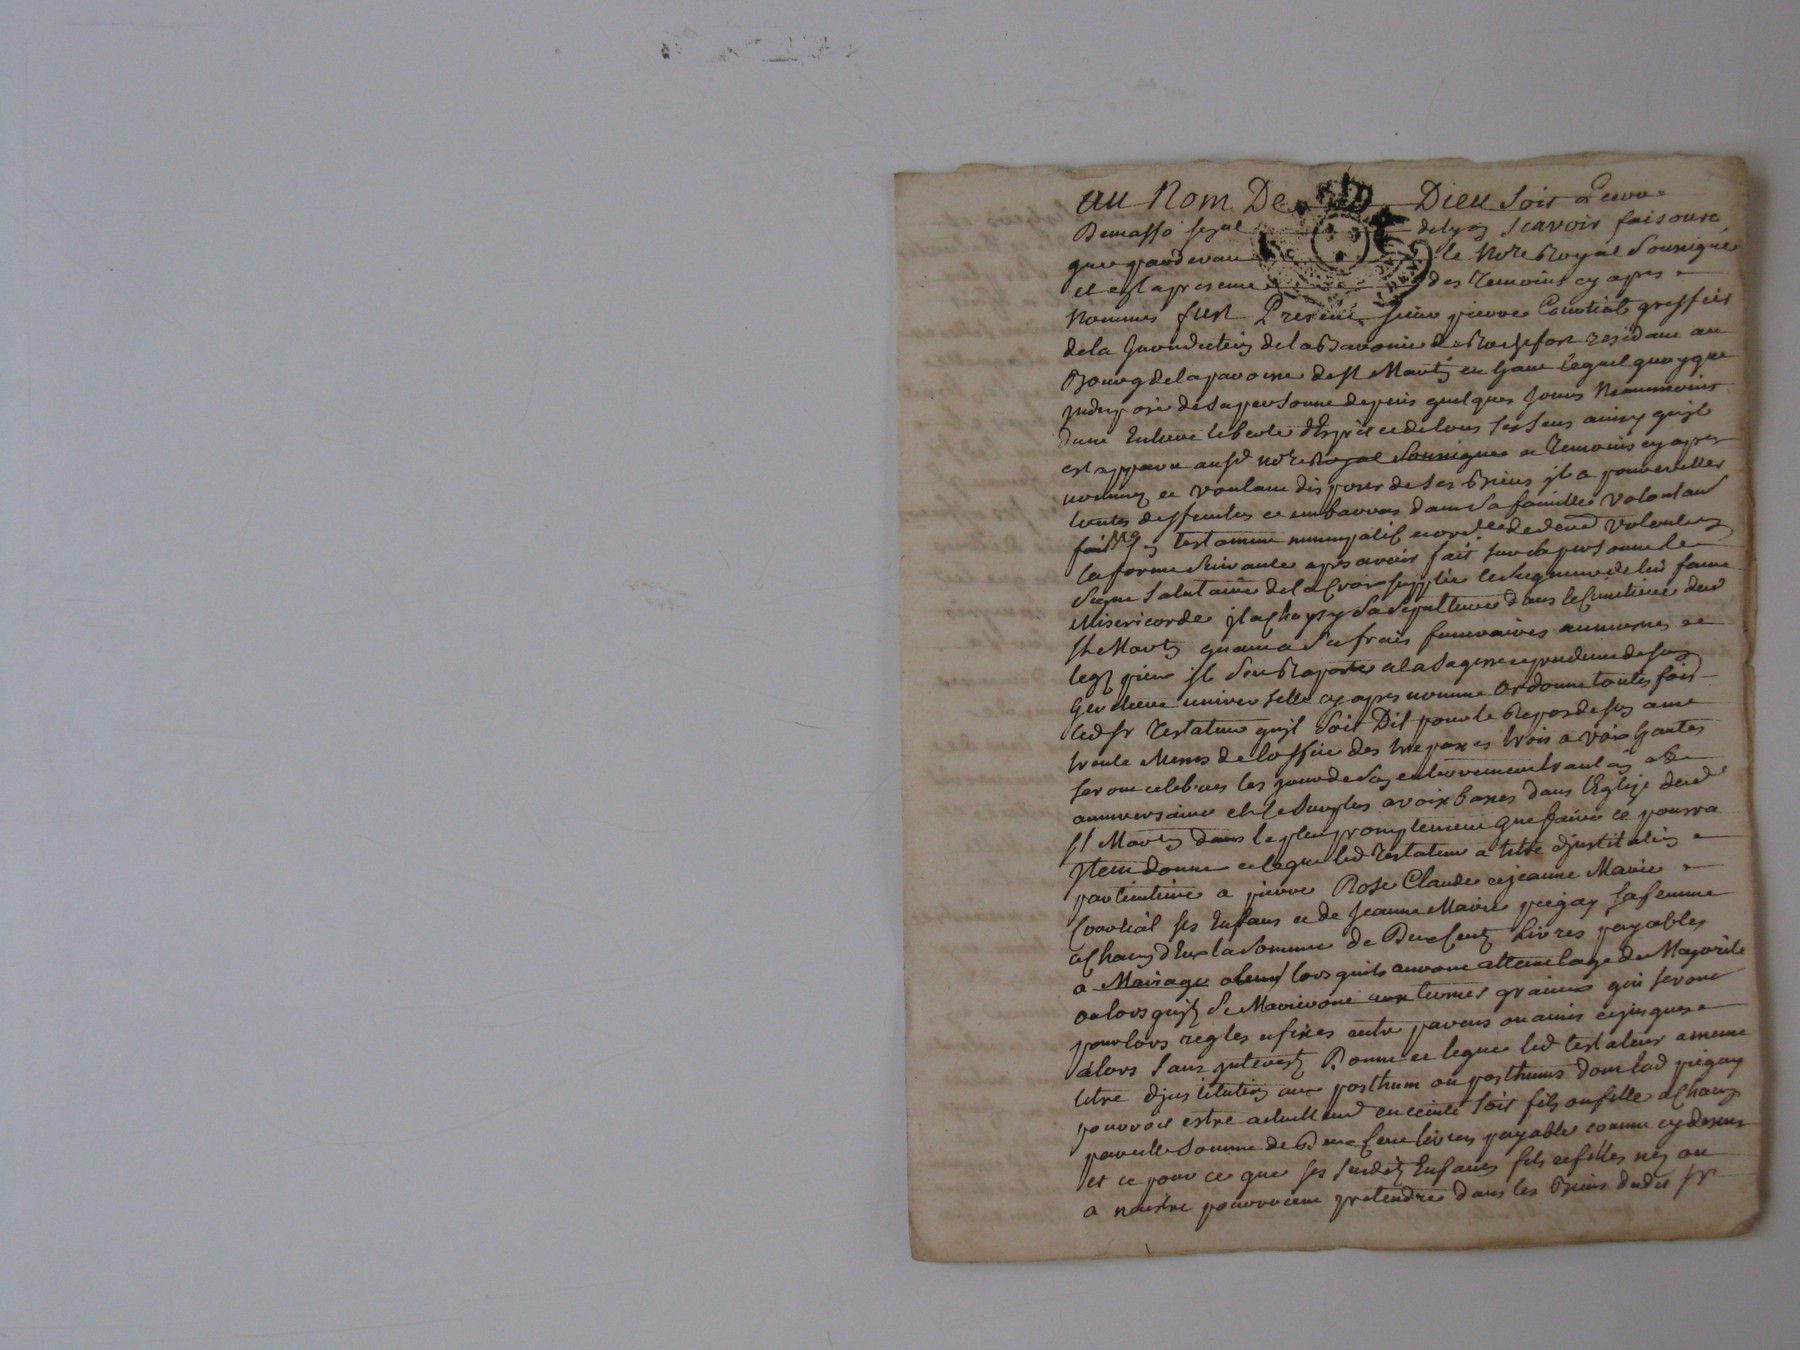 au Nom De Dieu Soit
de Lyon Scavoir faisons
que pardevant le No.re Royal Soussigné
et en la presence des Temoins cy apres
Nommes fust Present sieur pierre Courtial greffier
de la Jurisdiction de la Baronnie de Rochefort residant au
Bourg de la paroisse de St Martin en haut lequel quoyque
Indisposé de sa personne depuis quelques Jours Neanmoins
dans Entiere liberté d'Esprit et de tous ses sens ainsy quil
est apparu aud no.re Royal Soussigné et Temoins cy apres
nommés et voulant disposer de ses Biens
et embarras dans sa famille volontaud
fait testament nuncupatif et ord.re de dern.e volonté en
la forme Suivante apres avoir fait sur sa personne le
Signe Salutaire de la Croix supplié le Seigneur de lui faire
Misericorde Il a choysy sa sepulture dans le Cimetiere dud
St Martin quant a Ses frais funeraires aumosnes et
legs pieux Il s'en Raporte a la sagesse et prudence de son
heritiere universelle cy apres nommé ordonne toutes fois
led Sr Testateur quil soit Dit pour le Repos de son ame
trente Messes de loffice des trepassés trois a voix hautes
seront celebrees les jour de son enterrement quarantain et de
anniversaire et le Surplus a voix basses dans l'Eglize dud
St Martin dans le plus promptement que faire ce pourra
Item donne et legue led Testateur a titre d'Institution
particuliere a pierre Rose Claude et jeanne Marie
Courtial ses Enfans et de Jeanne Marie piegay sa femme
a chacun d'Eux la Somme de Deux Cents Livres payables
a Mariage lors quils auront atteint lage de Majorité
ou lors quils se Marieront aux termes gracieux qui seront
pour lors regles et fixes entre parens ou amis et jusques
alors Sans Interest Donne et legue led testateur a meme
titre d'Institution aux posthum ou posthumes dont lad piegay
pourroit estre actuellement enceinte soit fils ou fille a chacun
pareille Somme de Deux Cent livres payable comme cy dessus
et ce pour ce que ses susdits Enfants fils et filles nez ou
a naistre pourroient pretendre dans les Biens dudit Sr